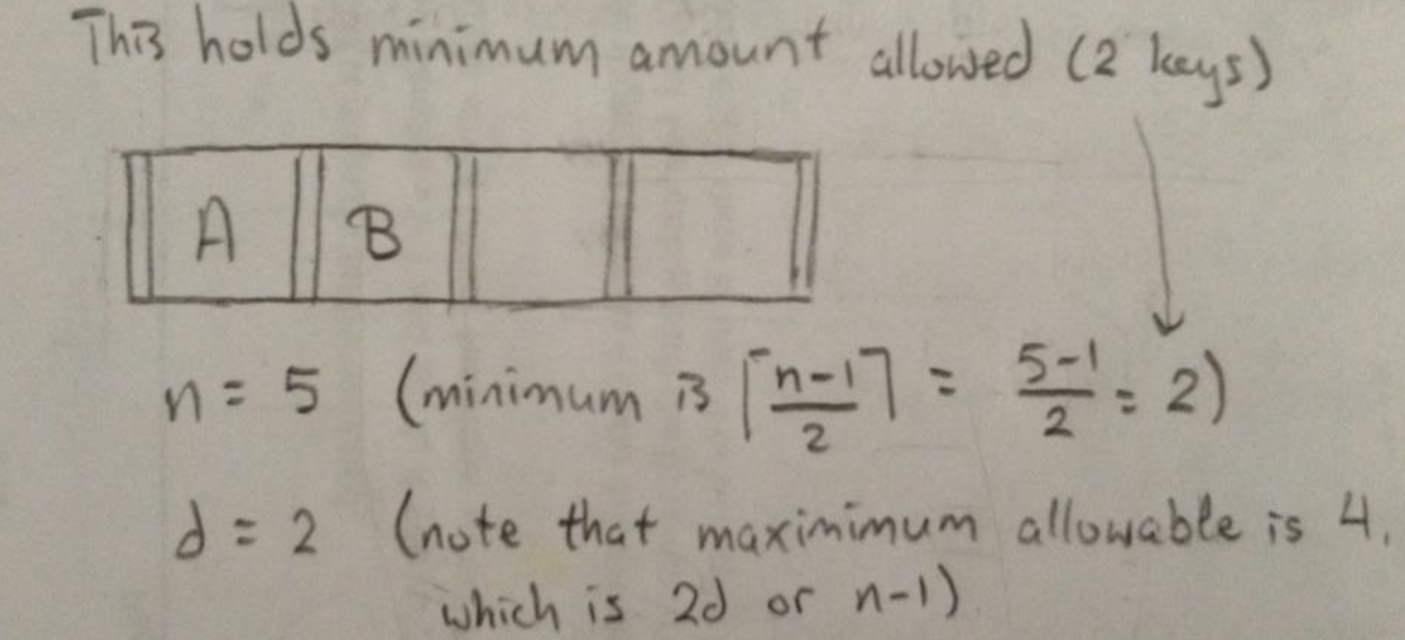 This holds minimum amount allowed (2 keys)
A B
n = 5 (minimum is ⌈n-1/2⌉ = 5-1/2 = 2)
d = 2 (note that maximimum allowable is 4,
which is 2d or n-1)